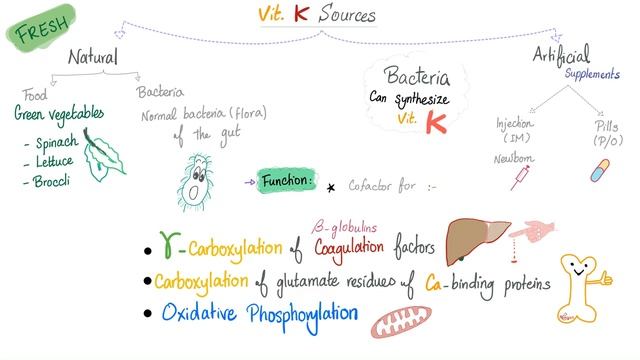 FRESH
Vit. K Sources
Natural
Artificial
Supplements
Food
Green vegetables
- Spinach
- Lettuce
- Broccli
Bacteria
Normal bacteria (flora)
of the gut
Bacteria
Can synthesize
Vit. K
Injection
(IM)
Newborn
Pills
(P/O)
Function:
* Cofactor for :-
β-globulins
• γ-Carboxylation of Coagulation factors
• Carboxylation of glutamate residues of Ca-binding proteins
• Oxidative Phosphorylation